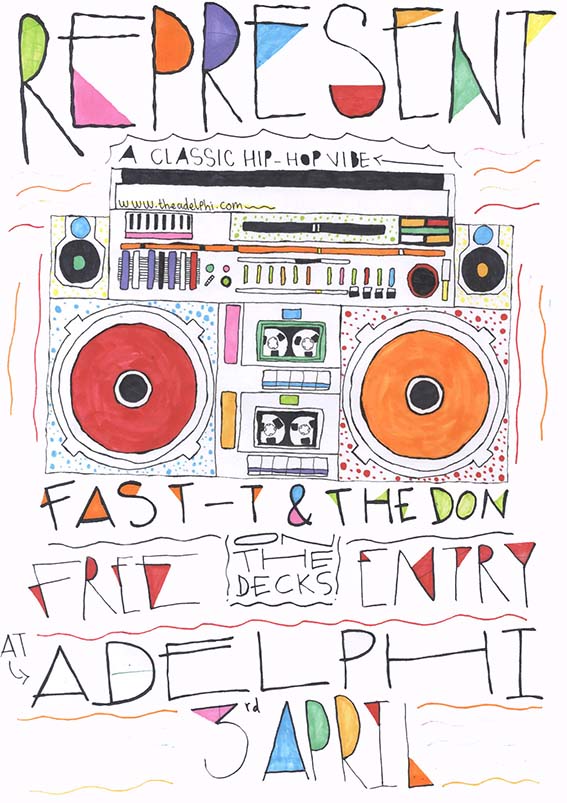 REPRESENT
A CLASSIC HIP-HOP VIBE
www.theadelphi.com
FAST-T & THE DON
FREE ON THE DECKS ENTRY
AT ADELPHI
3rd APRIL